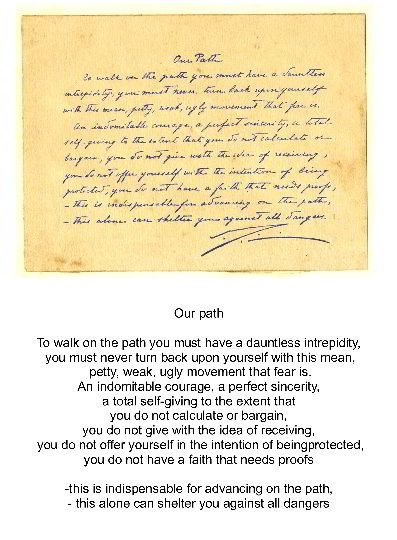 Our Path
To walk on the path you must have a dauntless
intrepidity, you must never turn back upon yourself
with this mean, petty, weak, ugly movement that fear is.
An indomitable courage, a perfect sincerity, a total
self-giving to the extent that you do not calculate or
bargain, you do not give with the idea of receiving,
you do not offer yourself with the intention of being
protected, you do not have a faith that needs proofs,
- this is indispensable for advancing on the path,
- this alone can shelter you against all dangers.
Our path
To walk on the path you must have a dauntless intrepidity,
you must never turn back upon yourself with this mean,
petty, weak, ugly movement that fear is.
An indomitable courage, a perfect sincerity,
a total self-giving to the extent that
you do not calculate or bargain,
you do not give with the idea of receiving,
you do not offer yourself in the intention of beingprotected,
you do not have a faith that needs proofs
-this is indispensable for advancing on the path,
- this alone can shelter you against all dangers